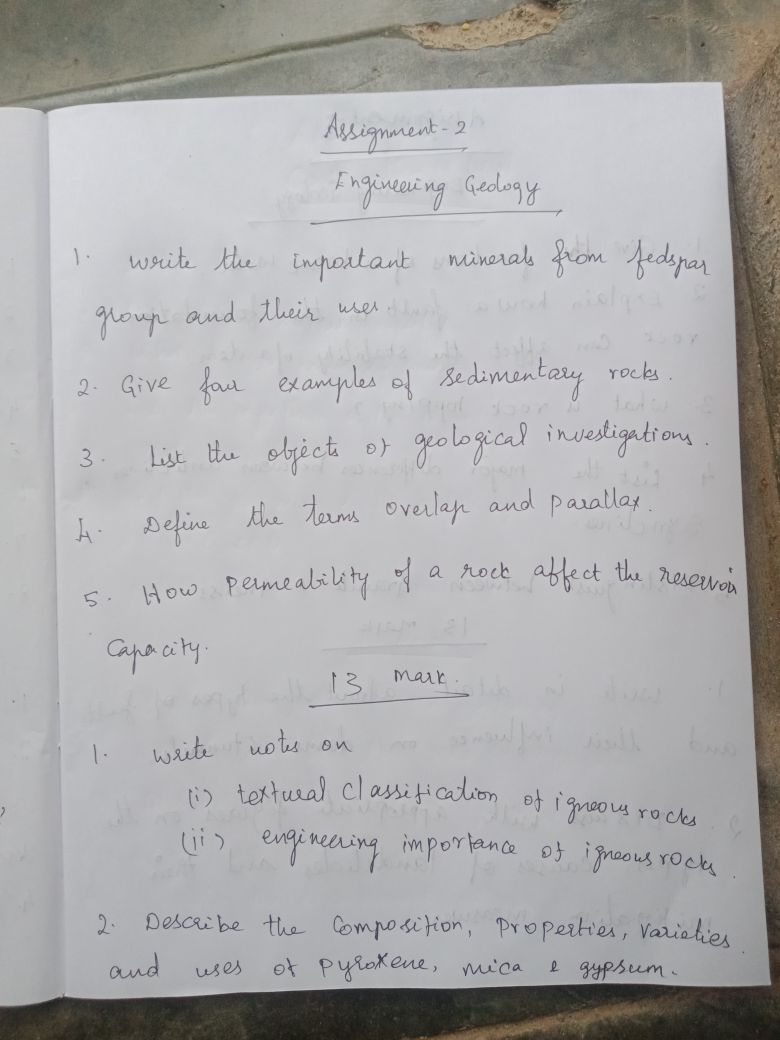 Assignment - 2
Engineering Geology
1. write the important minerals from fedspar
group and their uses.
2. Give four examples of sedimentary rocks.
3. List the objects of geological investigations.
4. Define the terms overlap and parallax.
5. How permeability of a rock affect the reservoir
Capacity.
13 mark.
1. write notes on
(i) textural classification of igneous rocks
(ii) engineering importance of igneous rocks.
2. Describe the Composition, Properties, Varieties
and uses of pyroxene, mica & gypsum.